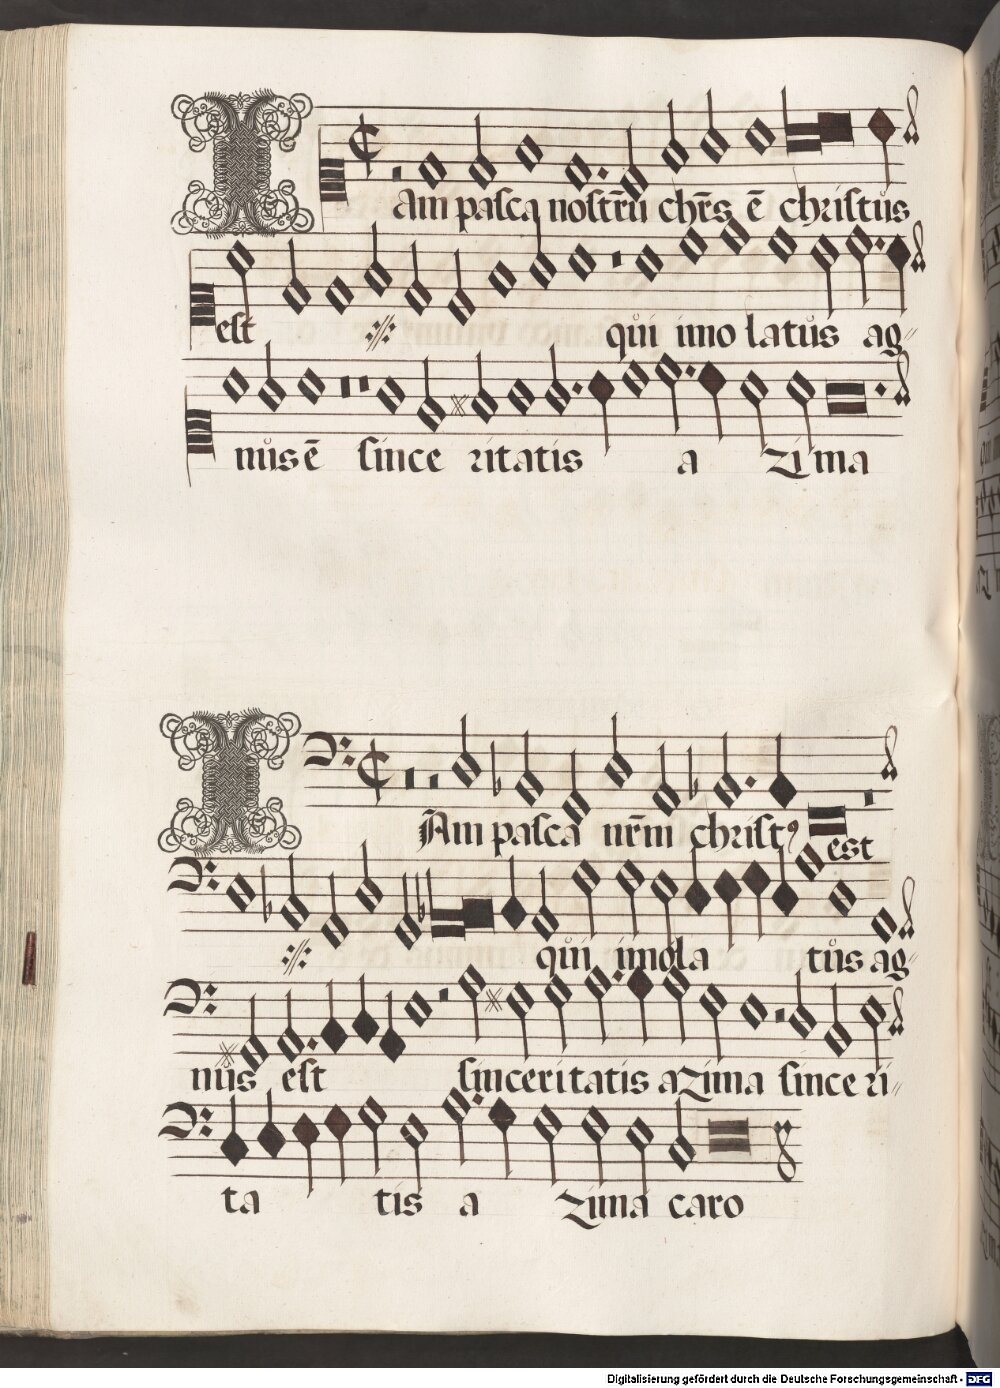 IAm pasca nostrũ chrs̃ ẽ christus
est ·//· qui imo latus ag-
nus ẽ since ritatis a zima
IAm pasca nrm̃ christꝰ est
·//· qui imola tus ag-
nus est sinceritatis azima since ri-
ta tis a zima caro
Digitalisierung gefördert durch die Deutsche Forschungsgemeinschaft - DFG